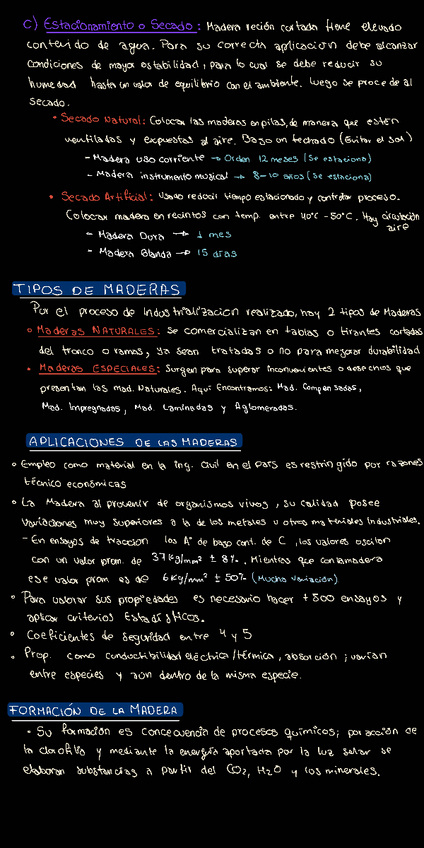 C) Estacionamiento o Secado: Madera recién cortada tiene elevado
contenido de agua. Para su correcta aplicacion debe alcanzar
condiciones de mayor estabilidad, para lo cual se debe reducir su
humedad hasta un valor de equilibrio con el ambiente. Luego se procede al
secado.
• Secado Natural: Colocar las maderas en pilas, de manera que esten
ventiladas y expuestas al aire. Bajo un techado (Evitar el sol)
- Madera uso corriente → Orden 12 meses (Se estaciona)
- Madera instrumento musical → 8-10 años (Se estaciona)
• Secado Artificial: Usado reducir tiempo estacionado y controlar proceso.
Colocar madera en recintos con temp. entre 40°C -50°C. Hay circulación
aire
- Madera Dura → 1 mes
- Madera Blanda → 15 días
TIPOS DE MADERAS
Por el proceso de Industrialización realizado, hay 2 tipos de Maderas
• Maderas NATURALES: Se comercializan en tablas o tirantes cortadas
del tronco o ramas, ya sean tratadas o no para mejorar durabilidad
• Maderas ESPECIALES: Surgen para superar inconvenientes o desechios que
presentan las mad. Naturales. Aquí Encontramos: Mad. Compensadas,
Mad. Impregnadas, Mad. Laminadas y Aglomeradas.
APLICACIONES DE LAS MADERAS
• Empleo como material en la ing. Civil en el país es restringido por razones
técnico económicas
• La Madera al provenir de organismos vivos, su calidad posee
variaciones muy superiores a la de los metales u otros materiales industriales.
- En ensayos de traccion los A° de bajo cont. de C, los valores oscilan
con un valor prom. de 37Kg/mm² ± 8%. Mientras que con la madera
ese valor prom es de 6Kg/mm² ± 50% (Mucha variación)
• Para valorar sus propiedades es necesario hacer +500 ensayos y
aplicar criterios Estadísticos.
• Coeficientes de Seguridad entre 4 y 5
• Prop. como conductibilidad eléctrica/térmica, absorción; varian
entre especies y aun dentro de la misma especie.
FORMACIÓN DE LA MADERA
• Su formación es concecuencia de procesos químicos; por acción de
la clorofila y mediante la energía aportada por la luz solar se
elaboran substancias a partir del CO₂, H₂O y los minerales.